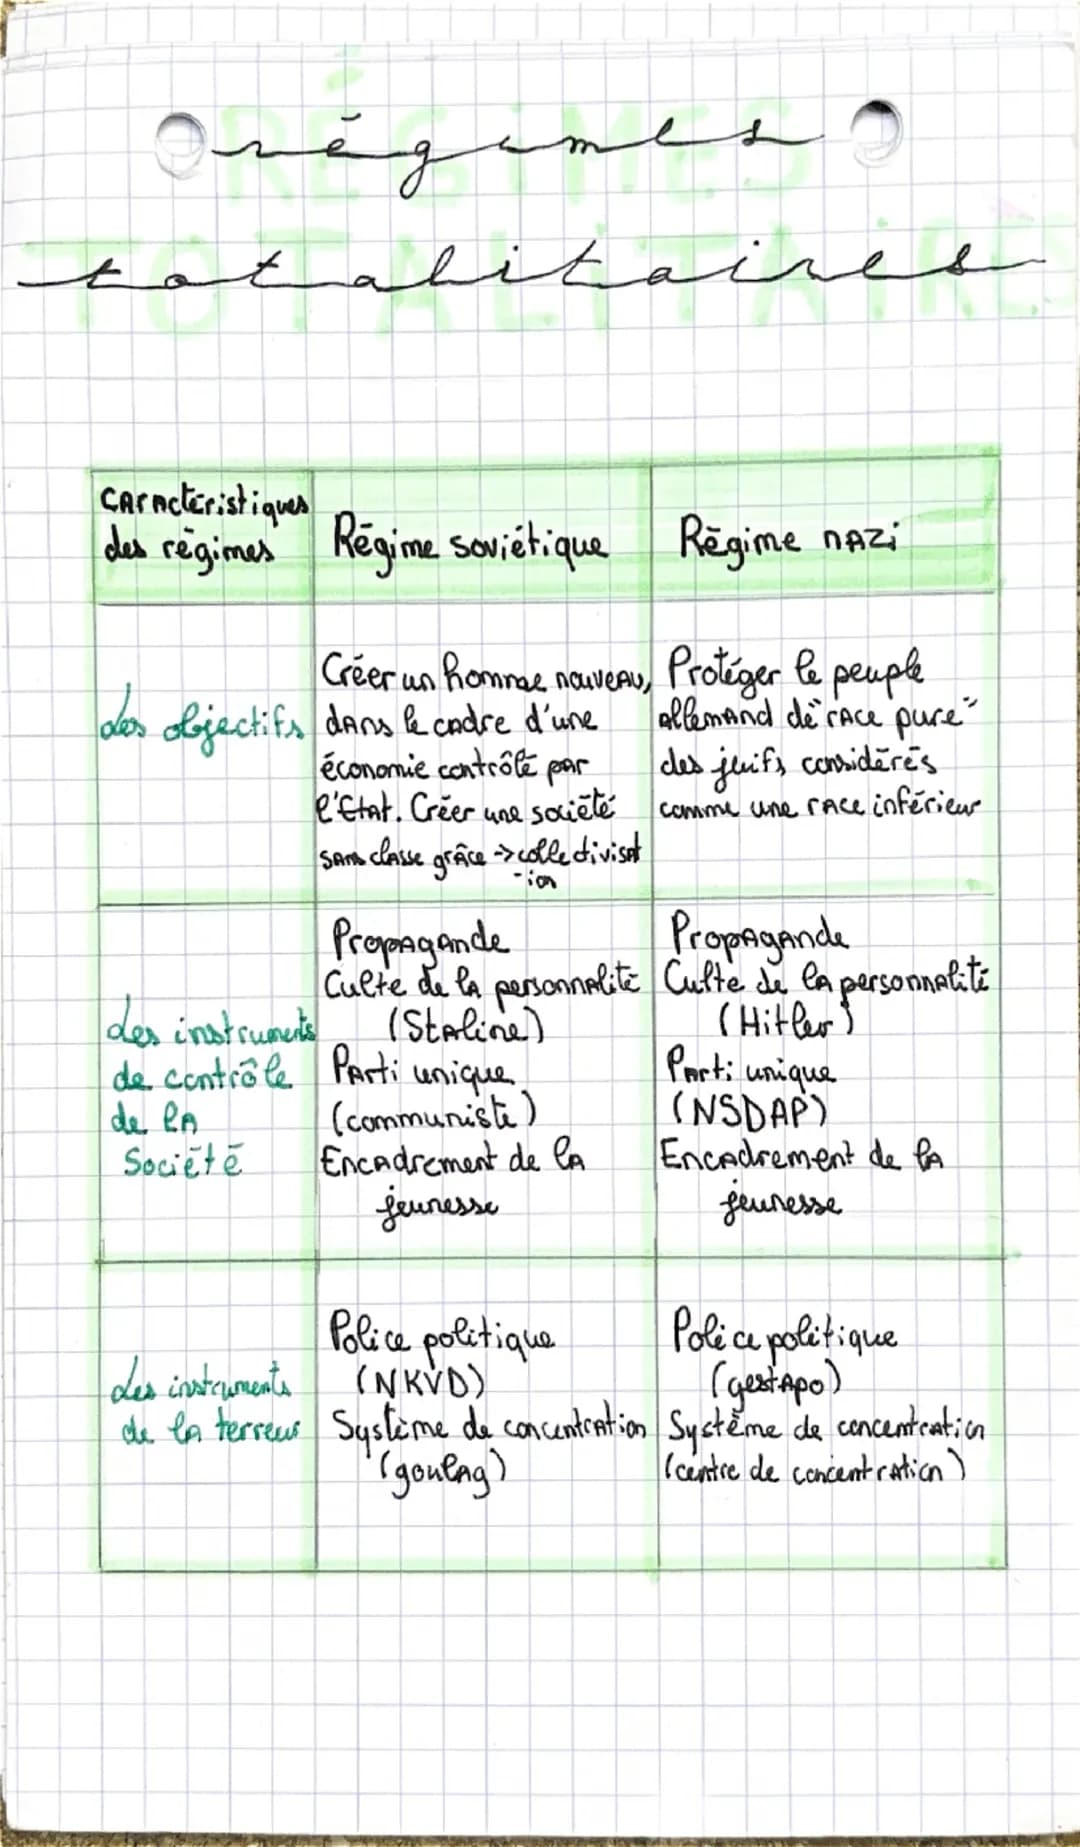 RÉGIMES
TOTALITAIRES
régimes
totalitaires
Caractéristiques
des régimes
Régime soviétique
Régime nazi
Les objectifs
Créer un homme nouveau,
dans le cadre d'une
économie contrôlé par
l'Etat. Créer une société
sans classe grâce → collectivisat
-ion
Protéger le peuple
allemand de "race pure"
des juifs considérés
comme une race inférieur
Les instruments
de contrôle
de la
Société
Propagande
Culte de la personnalité
(Staline)
Parti unique
(communiste)
Encadrement de la
jeunesse
Propagande
Culte de la personnalité
(Hitler)
Parti unique
(NSDAP)
Encadrement de la
jeunesse
Les instruments
de la terreur
Police politique
(NKVD)
Système de concentration
(goulag)
Police politique
(gestapo)
Système de concentration
(centre de concentration)